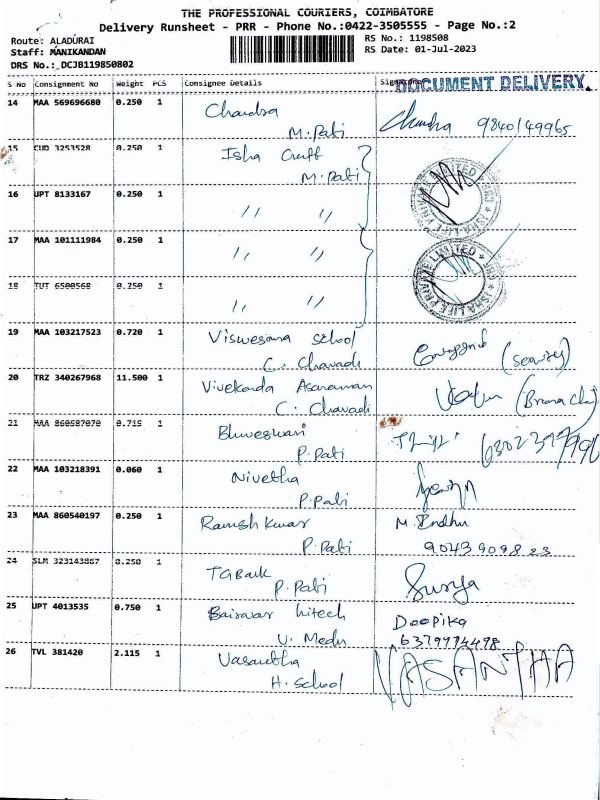 THE PROFESSIONAL COURIERS, COIMBATORE
Delivery Runsheet - PRR - Phone No.:0422-3505555 - Page No.:2
Route: ALADURAI
RS No.: 1198508
Staff: MANIKANDAN
RS Date: 01-Jul-2023
DRS No.: DCJB119850802
S No Consignment No Weight PCS Consignee Details
DOCUMENT DELIVERY.
14 MAA 569696680 0.250 1 Chandra
M. Pati Chandra 9840149965
15 CUD 3253528 0.250 1 Isha Craft
M. Pati
16 UPT 8133167 0.250 1 " "
17 MAA 101111984 0.250 1 " "
18 TUT 6500568 0.250 1 " "
ISHA LIFE PRIVATE LIMITED
ISHA LIFE PRIVATE LIMITED
19 MAA 103217523 0.720 1 Viswesana School
C. Chavadi
20 TRZ 340267968 11.500 1 Vivekanda
C. Chavadi
21 MAA 860587070 0.715 1 Bhuveswari
P. Pati
22 MAA 103218391 0.060 1 Nivetha
P. Pati
23 MAA 860540197 0.250 1 Ramesh Kumar M. Indhu
P. Pati 9043909823
24 SLM 323143867 0.250 1
P. Pati Surya
25 UPT 4013535 0.750 1 hitech Deepika
6379974498
26 TVL 381420 2.115 1 Vasantha VASANTHA
H. School